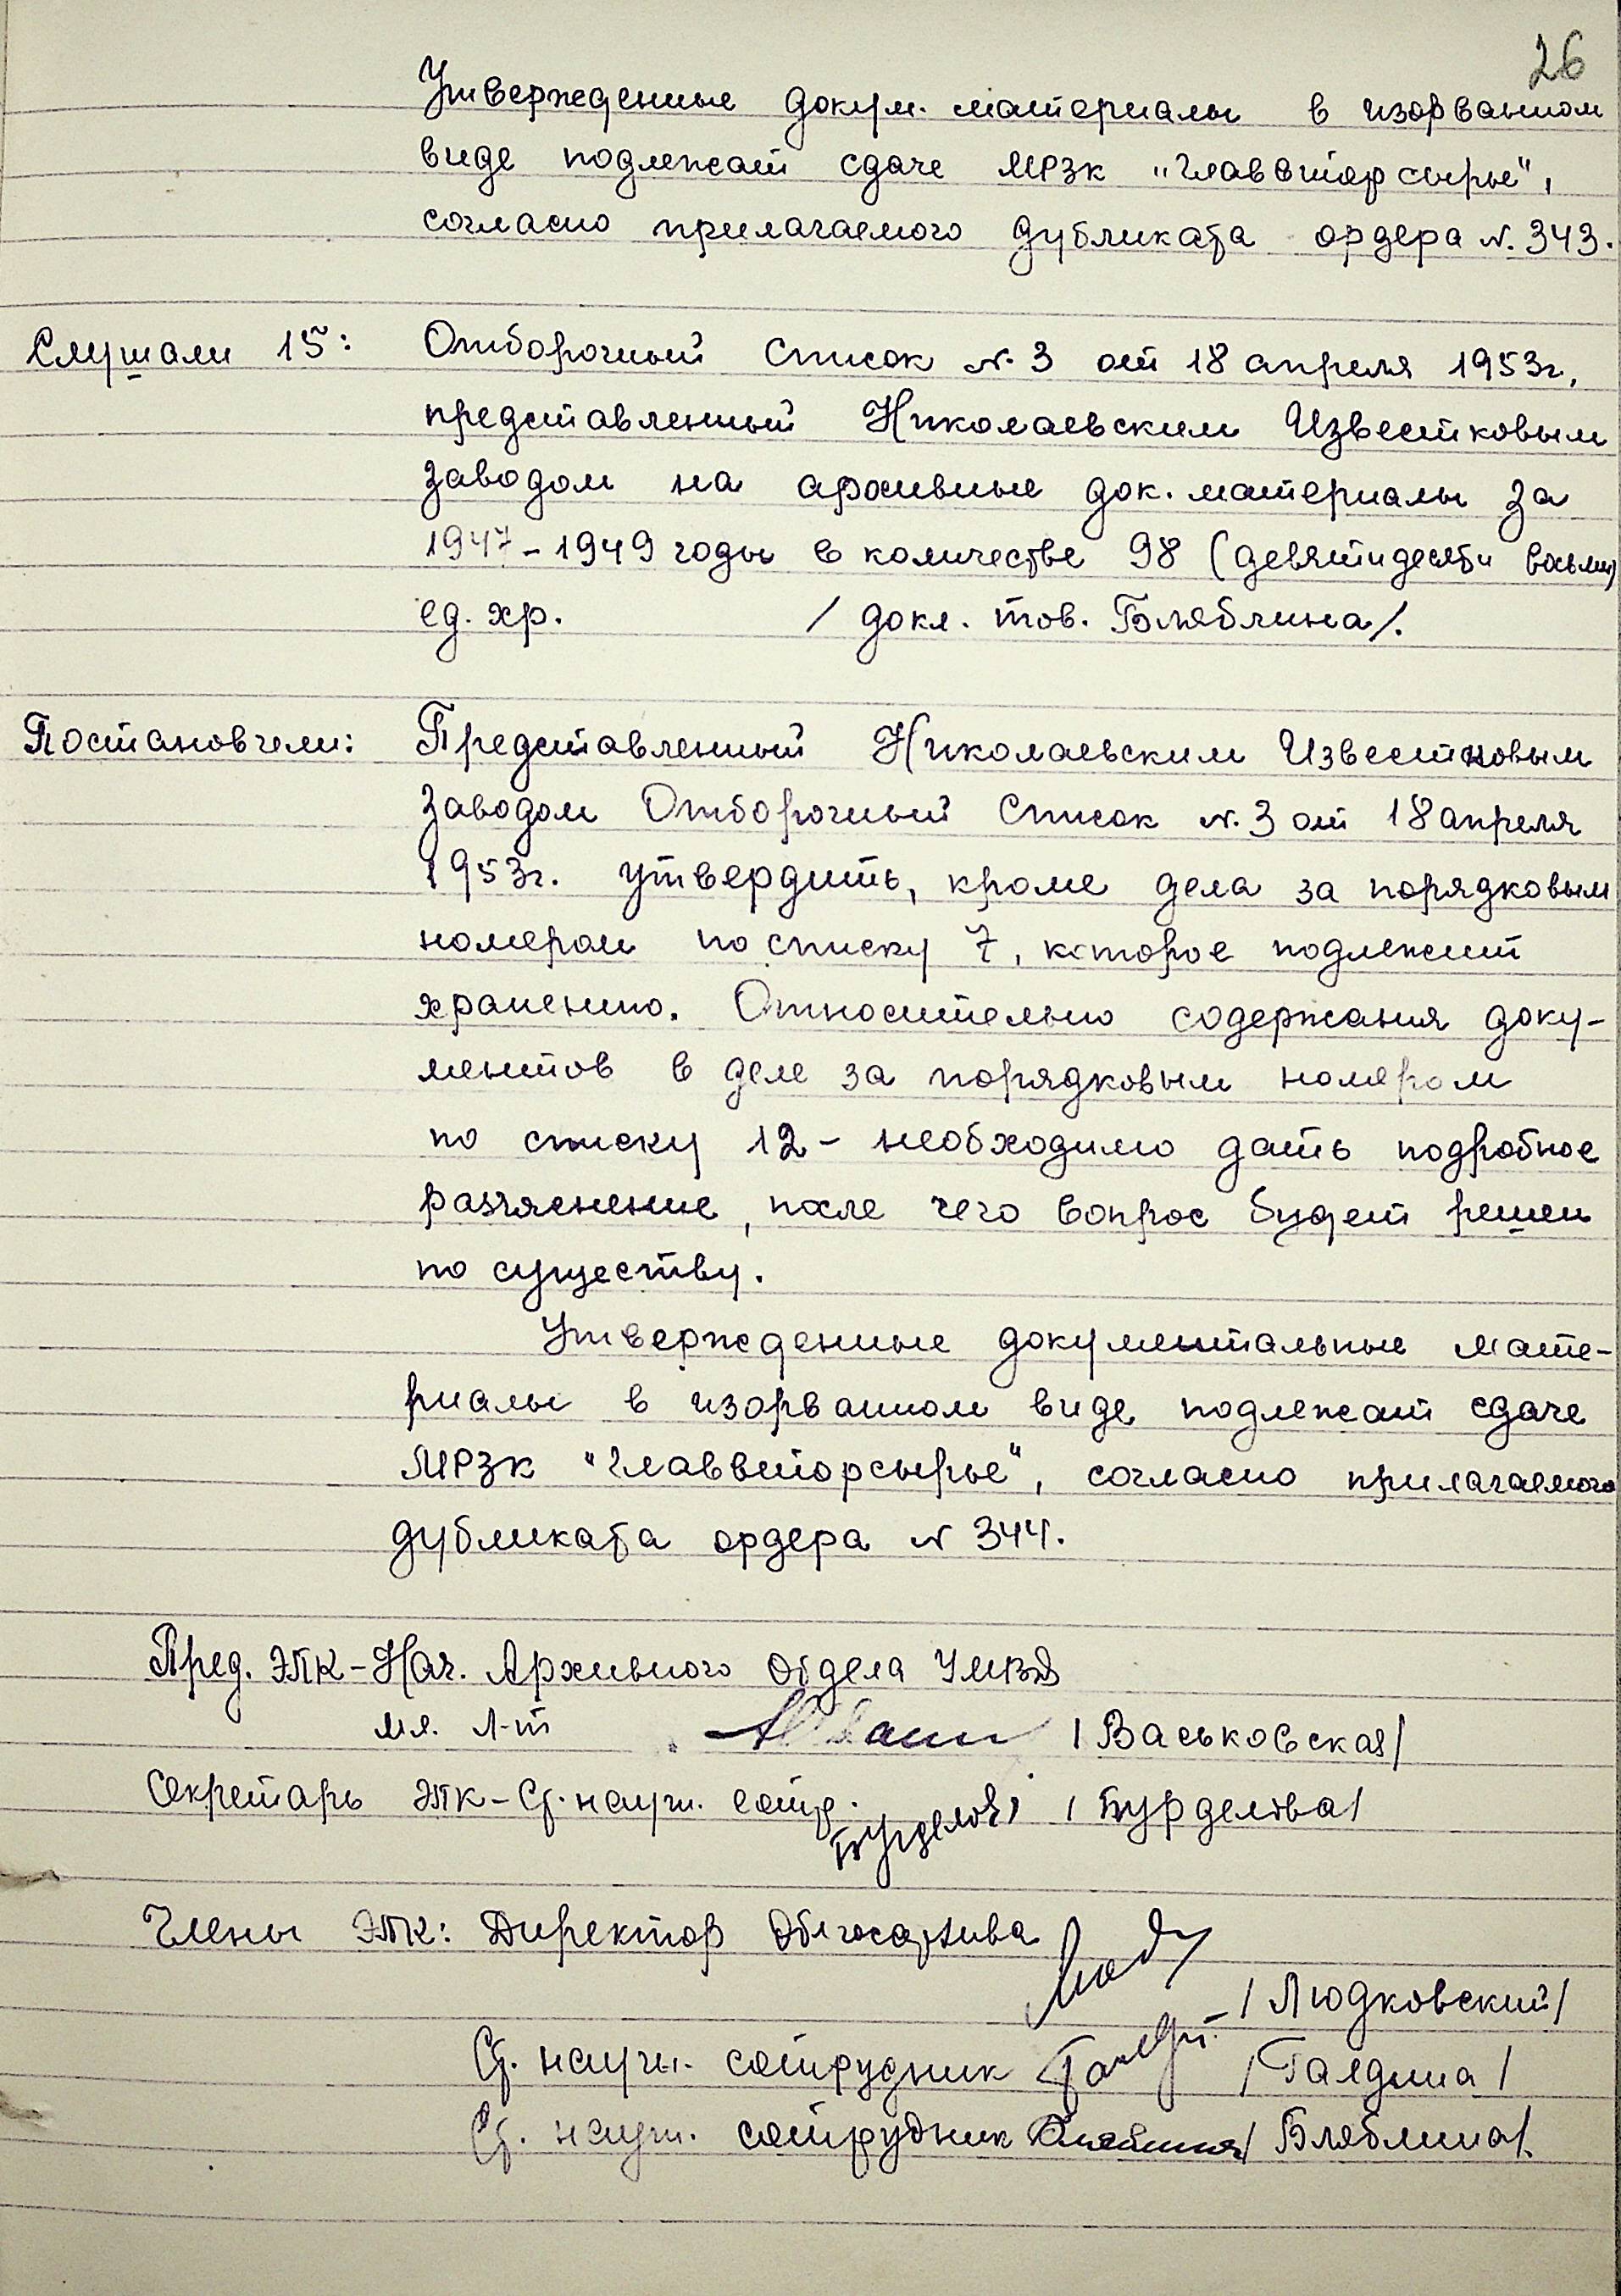 26
Утвержденные докум. материалы в изорванном
виде подлежат сдаче МРЗК "Главвторсырье",
согласно прилагаемого дубликата ордера N. 343.
Слушали 15: Отборочный список N. 3 от 18 апреля 1953г.,
представленный Николаевским Известковым
заводом на архивные док. материалы за
1947-1949 годы в количестве 98 (девятидесяти восьми)
ед. хр. / докл. тов. Бляблина/.
Постановили: Представленный Николаевским Известковым
заводом Отборочный список N. 3 от 18 апреля
1953г. утвердить, кроме дела за порядковым
номером по списку 7, которое подлежит
хранению. Относительно содержания доку-
ментов в деле за порядковым номером
по списку 12 - необходимо дать подробное
разъяснение, после чего вопрос будет решен
по существу.
Утвержденные документальные мате-
риалы в изорванном виде подлежат сдаче
МРЗК "Главвторсырье", согласно прилагаемого
дубликата ордера N 344.
Пред. ЭПК - Нач. Архивного отдела УМВД
мл. л-т /Васьковская/
Секретарь ЭПК - Ст. научн. сотр. Бурделова /Бурделова/
Члены ЭПК: Директор Облгосархива
/Людковский/
Ст. научн. сотрудник /Галдина/
Ст. научн. сотрудник Бляблина /Бляблина/.